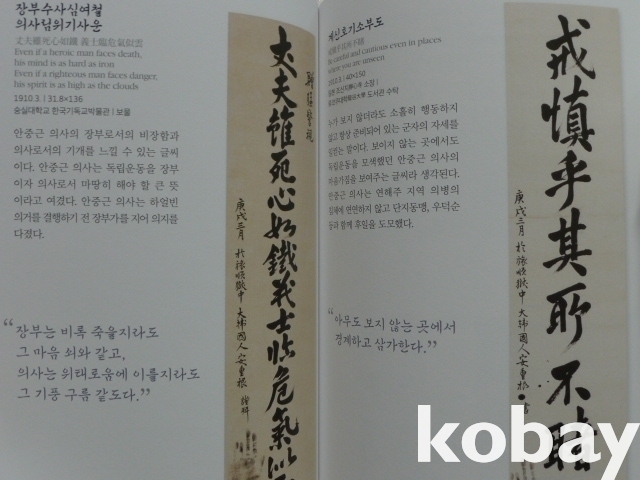 장부수사심여철
의사님위기사운
丈夫雖死心如鐵 義士臨危氣似雲
Even if a heroic man faces death,
his mind is as hard as iron
Even if a righteous man faces danger,
his spirit is as high as the clouds
1910.3. | 31.8×136
숭실대학교 한국기독교박물관 | 보물
안중근 의사의 장부로서의 비장함과
의사로서의 기개를 느낄 수 있는 글씨
이다. 안중근 의사는 독립운동을 장부
이자 의사로서 마땅히 해야 할 큰 뜻
이라고 여겼다. 안중근 의사는 하얼빈
의거를 결행하기 전 장부가를 지어 의지를
다졌다.
“장부는 비록 죽을지라도
그 마음 쇠와 같고,
의사는 위태로움에 이를지라도
그 기풍 구름 같도다.”
丈夫雖死心如鐵義士臨危氣似
庚戌三月 於旅順獄中 大韓國人安重根 謹拜
계신호기소부도
Be careful and cautious even in places
where you are unseen
1910.3. | 40×150
누가 보지 않더라도 소홀히 행동하지
않고 항상 준비되어 있는 군자의 자세를
일컫는 말이다. 보이지 않는 곳에서도
독립운동을 모색했던 안중근 의사의
마음가짐을 보여주는 글씨라 생각된다.
안중근 의사는 연해주 지역 의병의
침체에 연연하지 않고 단지동맹, 우덕순
등과 함께 후일을 도모했다.
“아무도 보지 않는 곳에서
경계하고 삼가한다.”
戒愼乎其所不睹
庚戌三月 於旅順獄中 大韓國人安重根 書
kobay